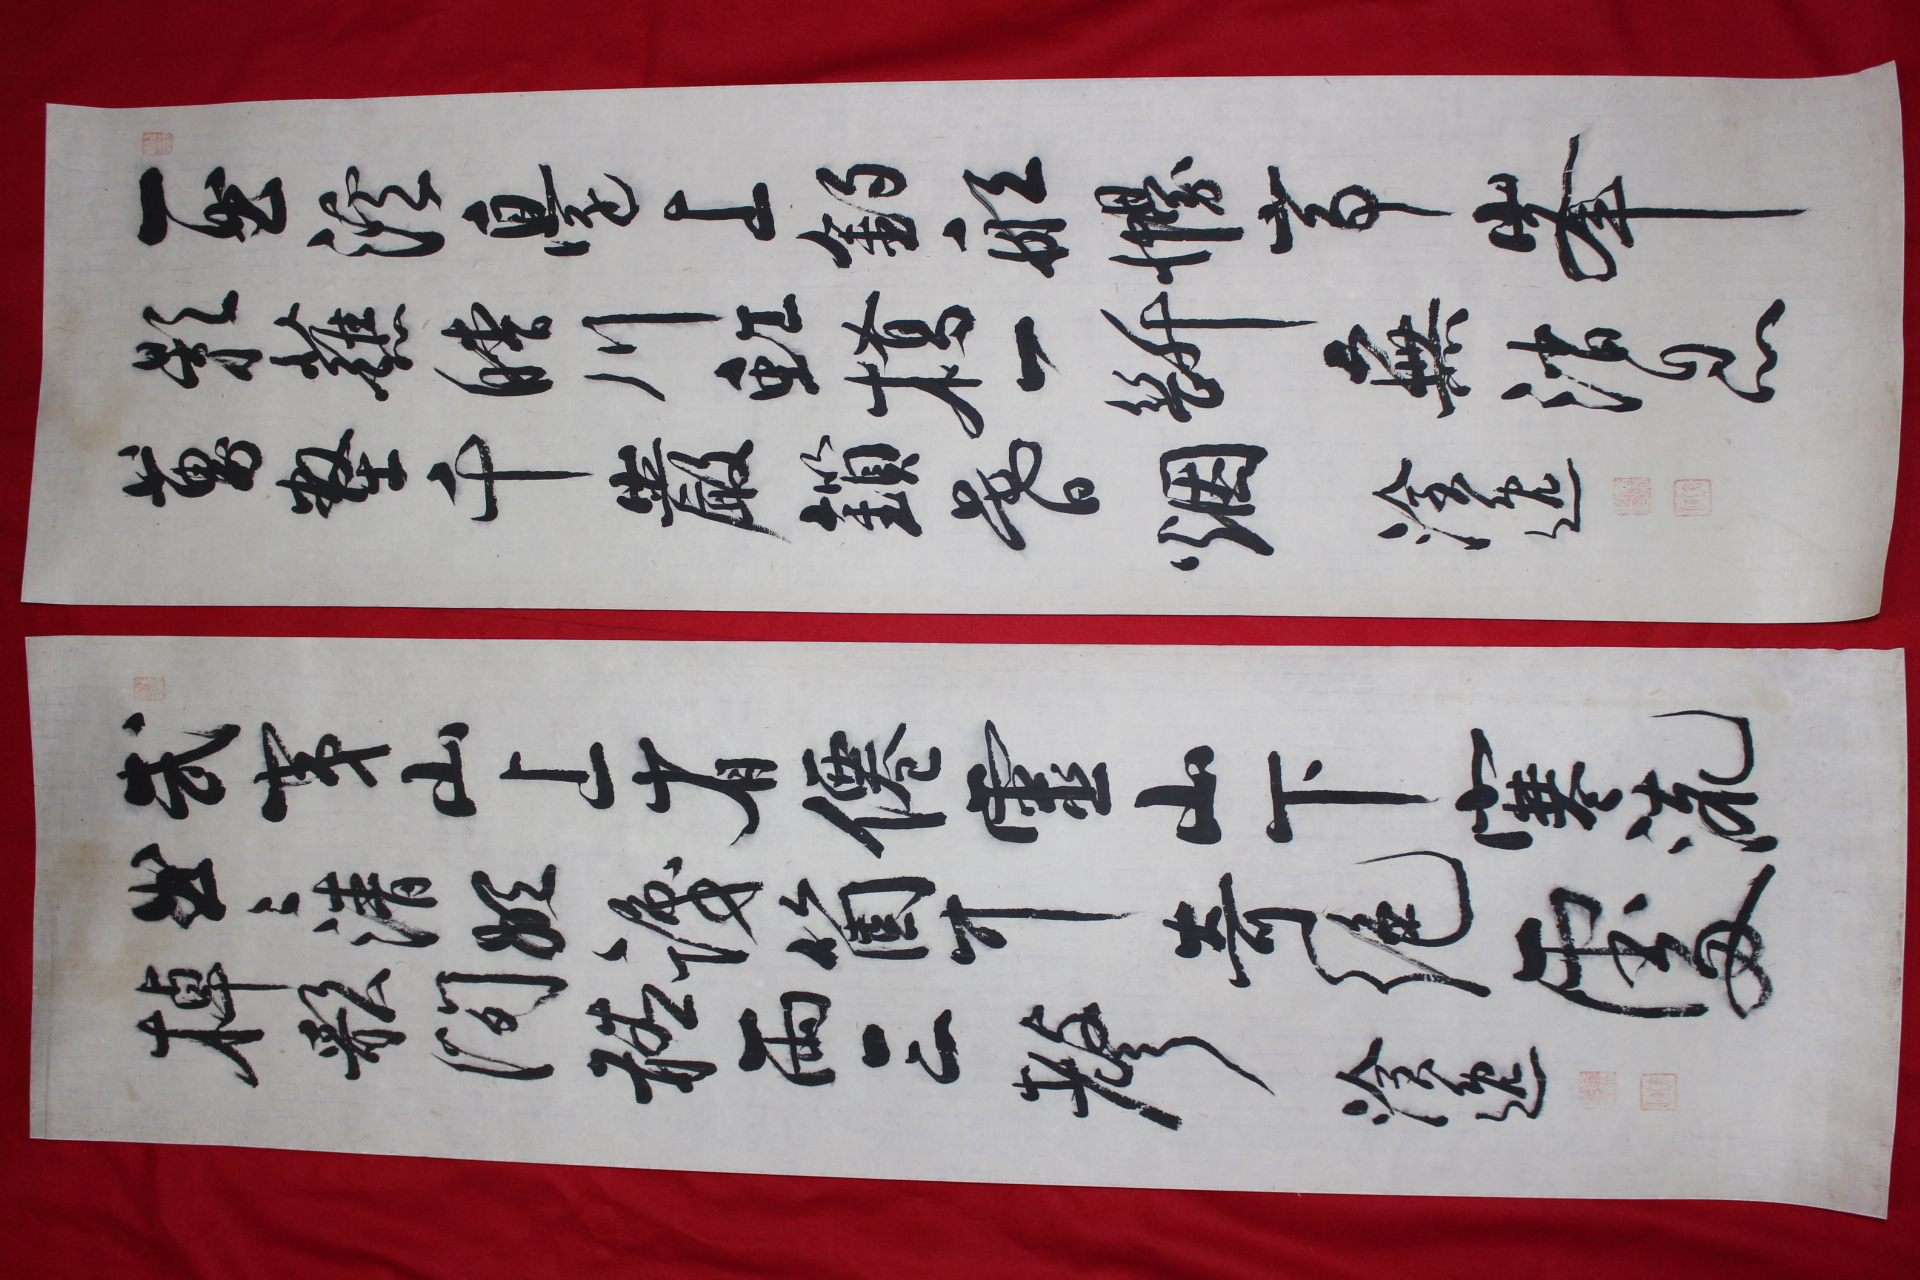 一曲溪邊上釣船幔亭峯
影蘸晴川虹橋一斷無消息
萬壑千巖鎖暮烟
逸
武夷山上有僊靈山下寒流
曲〻清欲識箇中奇絕處
棹歌閒聽兩三聲
逸